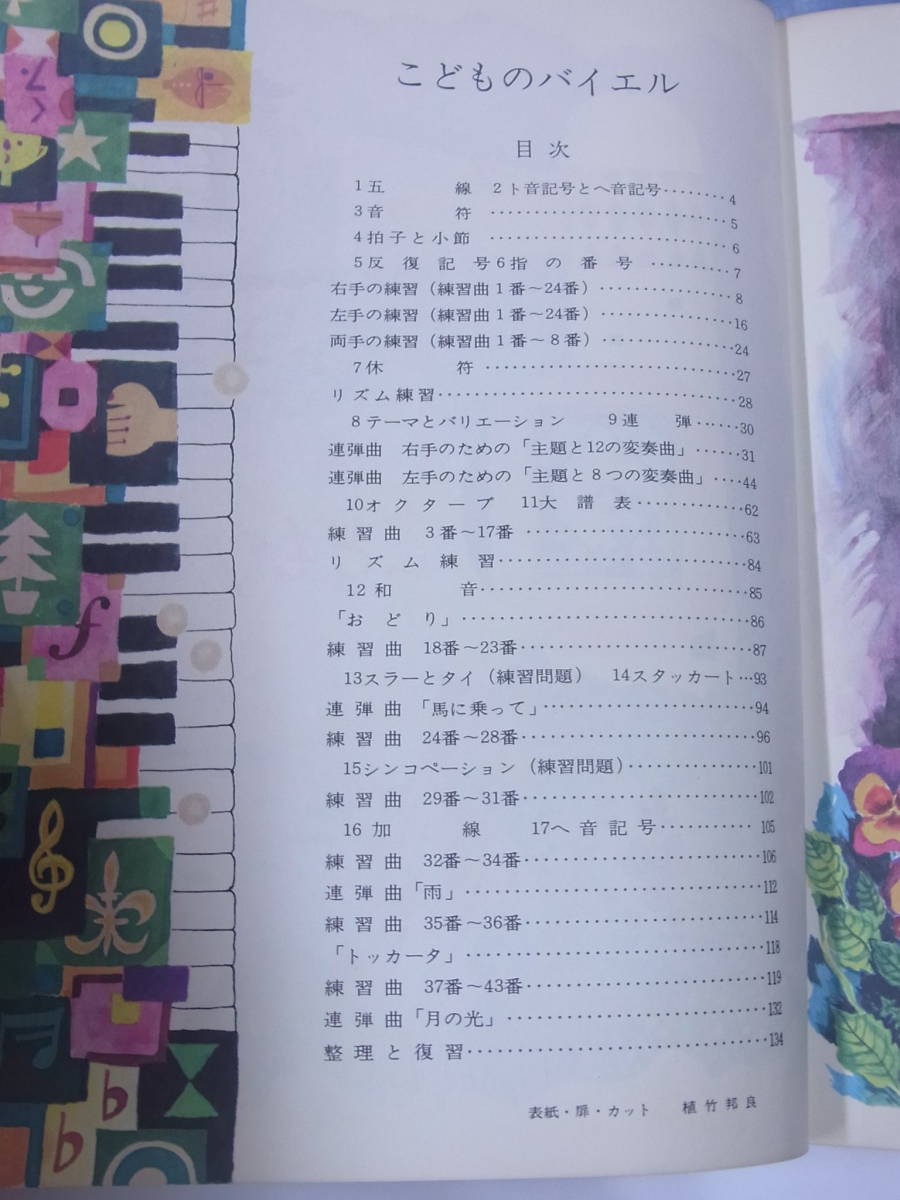 こどものバイエル
目次
1五線 2ト音記号とヘ音記号‥‥‥‥4
3音符‥‥‥‥‥‥‥‥‥‥5
4拍子と小節‥‥‥‥‥‥‥‥‥‥6
5反復記号6指の番号‥‥‥‥7
右手の練習(練習曲1番〜24番)‥‥‥‥‥‥8
左手の練習(練習曲1番〜24番)‥‥‥‥‥‥16
両手の練習(練習曲1番〜8番)‥‥‥‥‥‥24
7休符‥‥‥‥‥‥‥‥‥‥27
リズム練習‥‥‥‥‥‥‥‥‥‥‥‥28
8テーマとバリエーション 9連弾‥‥30
連弾曲 右手のための「主題と12の変奏曲」‥‥31
連弾曲 左手のための「主題と8つの変奏曲」‥‥44
10オクターブ 11大譜表‥‥‥‥‥62
練習曲 3番〜17番‥‥‥‥‥‥‥‥‥63
リズム練習‥‥‥‥‥‥‥‥‥‥84
12和音‥‥‥‥‥‥‥‥‥‥85
「おどり」‥‥‥‥‥‥‥‥‥‥‥‥86
練習曲 18番〜23番‥‥‥‥‥‥‥‥‥87
13スラーとタイ(練習問題) 14スタッカート…93
連弾曲「馬に乗って」‥‥‥‥‥‥‥‥94
練習曲 24番〜28番‥‥‥‥‥‥‥‥‥96
15シンコペーション(練習問題)‥‥‥‥‥101
練習曲 29番〜31番‥‥‥‥‥‥‥‥‥102
16加線 17ヘ音記号‥‥‥‥105
練習曲 32番〜34番‥‥‥‥‥‥‥‥‥106
連弾曲「雨」‥‥‥‥‥‥‥‥‥‥‥112
練習曲 35番〜36番‥‥‥‥‥‥‥‥‥114
「トッカータ」‥‥‥‥‥‥‥‥‥‥‥118
練習曲 37番〜43番‥‥‥‥‥‥‥‥‥119
連弾曲「月の光」‥‥‥‥‥‥‥‥‥‥132
整理と復習‥‥‥‥‥‥‥‥‥‥‥134
表紙・扉・カット 植竹邦良